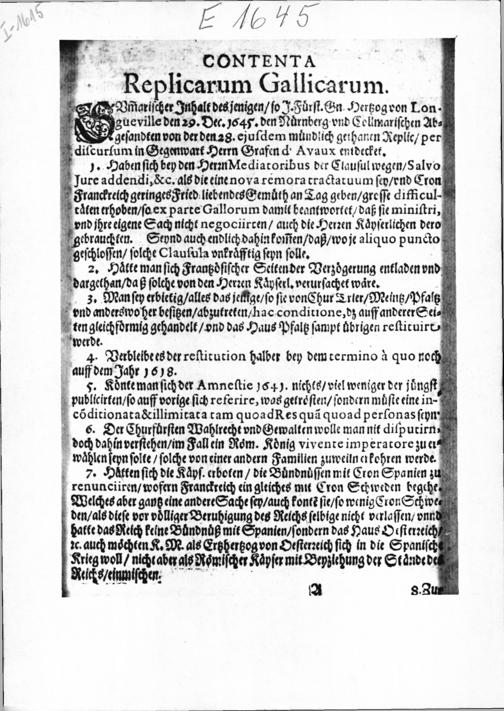 I-1645
E 1645
CONTENTA
Replicarum Gallicarum.
SUm̃arischer Inhalt des jenigen/ so J. Fürst. Gn. Hertzog von Lon-
gueville den 29. Dec. 1645. den Nürnberg. vnd Collmarischen Ab-
gesandten von der den 28. ejusdem mündlich gethanen Replic/ per
discursum in Gegenwart Herrn Grafen d' Avaux entdecket.
1. Haben sich bey den Herrn Mediatoribus der Clausul wegen/ Salvo
Jure addendi, &c. als die eine nova remora tractatuum sey/ vnd Cron
Franckreich geringes Fried liebendes Gemüth an Tag geben/ grosse difficul-
täten erhoben/ so ex parte Gallorum damit beantwortet/ daß sie ministri,
vnd jhre eigene Sach nicht negociirten/ auch die Herzen Käyserlichen dero
gebrauchten. Seynd auch endlich dahin kom̃en/ daß/ wo je aliquo puncto
geschlossen/ solche Clausula vnkräfftig seyn solle.
2. Hätte man sich Frantzösischer Seiten der Verzögerung entladen vnd
dargethan/ daß solche von den Herzen Käyserl. verursachet wäre.
3. Man sey erbietig/ alles das jenige/ so sie von Chur Trier/ Meintz/ Pfaltz
vnd anderswo her besitzen/ abzutreten/ hac conditione, dz auff anderer Sei-
ten gleichförmig gehandelt/ vnd das Haus Pfaltz sampt übrigen restituirt
werde.
4. Verbleibe es der restitution halber bey dem termino à quo noch
auff dem Jahr 1618.
5. Könte man sich der Amnestie 1641. nichts/ viel weniger der jüngst
publicirten/ so auff vorige sich referire, was getrösten/ sondern müste eine in-
cōditionata & illimitata tam quoad Res quã quoad personas seyn.
6. Der Churfürsten Wahlrecht vnd Gewalten wolle man nit disputirn
doch dahin verstehen/ im Fall ein Röm. König vivente imperatore zu er-
wählen seyn solte/ solche von einer andern Familien zuweiln erkohren werde.
7. Hätten sich die Käys. erboten/ die Bündnüssen mit Cron Spanien zu
renunciiren/ wofern Franckreich ein gleiches mit Cron Schweden begehe.
Welches aber gantz eine andere Sache sey/ auch konte sie/ so wenig Cron Schwe-
den/ als diese vor völliger Beruhigung des Reichs selbige nicht verlassen/ vnnd
hatte das Reich keine Bündnüß mit Spanien/ sondern das Haus Oesterreich/
&c. auch möchten K. M. als Ertzhertzog von Oesterreich sich in die Spanische
Krieg woll/ nicht aber als Römischer Käyser mit Beyziehung der Stände des
Reichs/ einmischen.
A 8. Zur